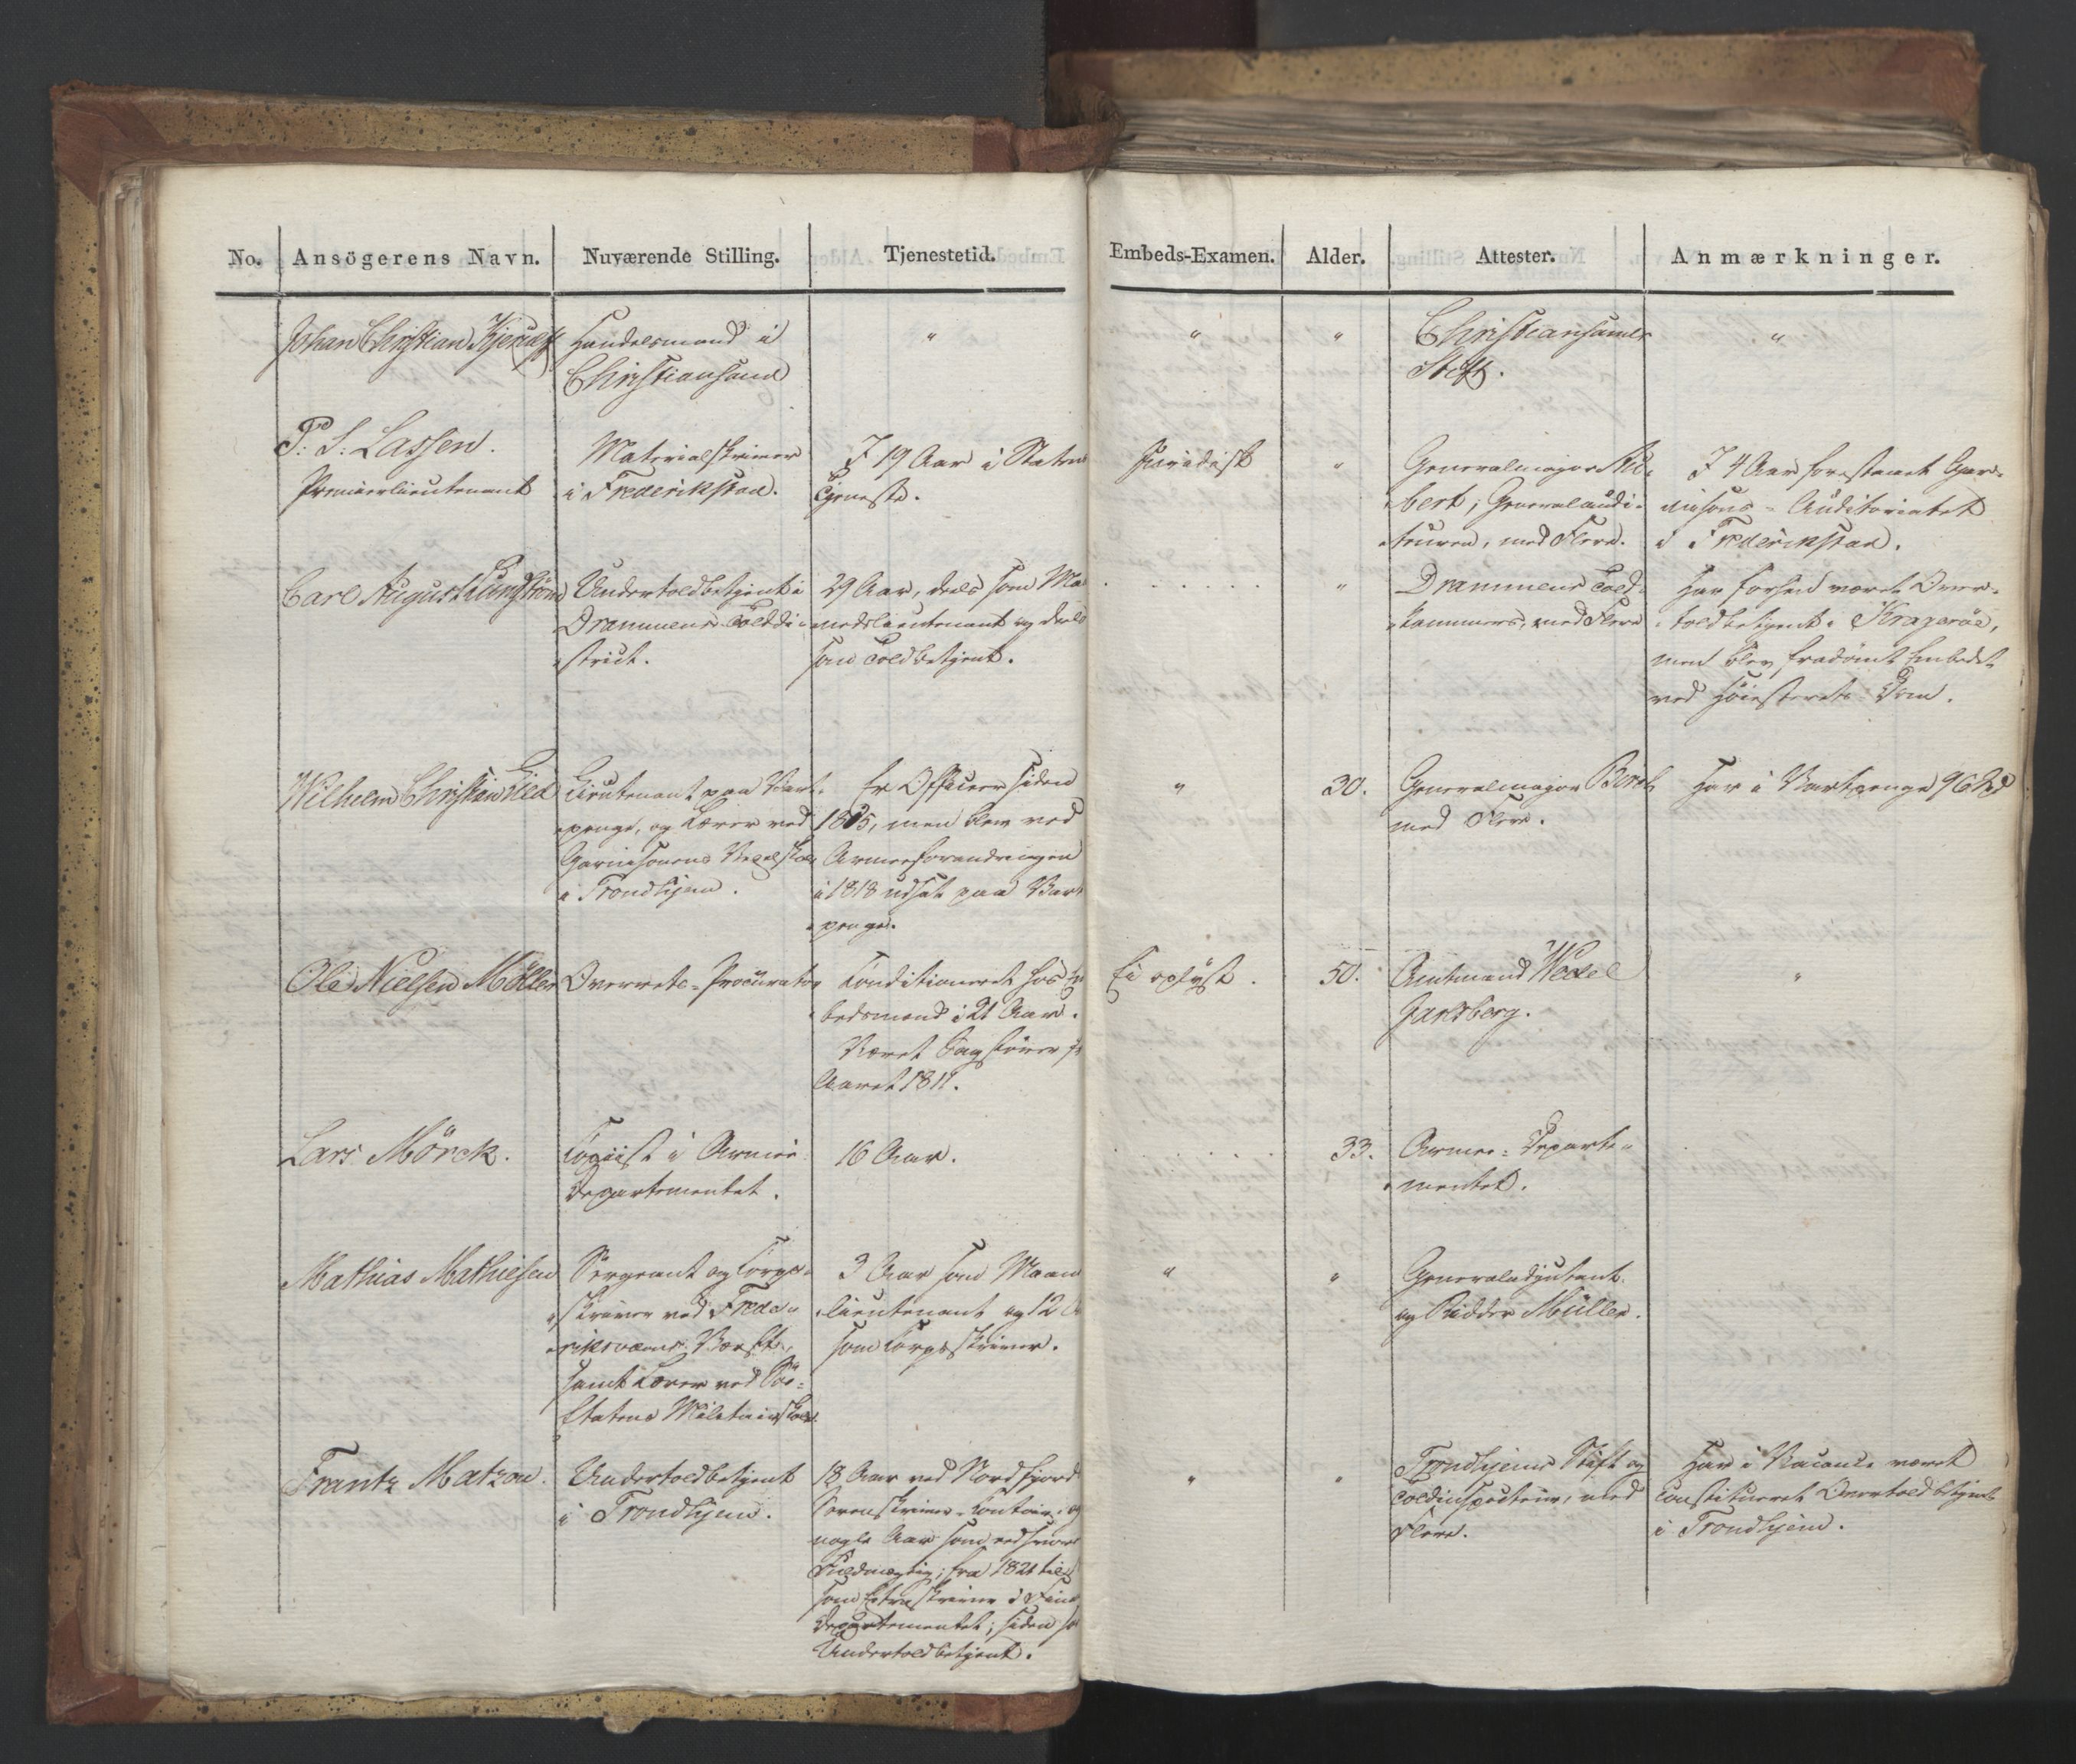 No. Ansögerens Navn. Nuværende Stilling. Tjenestetid. Embeds-Examen. Alder. Attester. Anmærkninger.
Johan Christian Kjerulf
Handelsmand i
Christiansand
"
"
"
Christiansands
Stift.
"
P: S: Lassen.
Premierlieutenant
Materialskriver
i Frederikstad.
I 19 Aar i Statens
Tjeneste.
Juridisk
"
Generalmajor Au-
bert, Generalaudi-
teuren, med Flere.
I 4 Aar forestaaet Gar-
nisons-Auditoriatet
i Frederikstad.
Carl August
Undertoldbetjent i
Drammens Tolddi-
strict.
29 Aar, deels som Ma-
nedslieutenant og deels
som Toldbetjent.
"
Drammens Told-
kammers, med Flere
Har forhen været Over-
toldbetjent i Krageröe,
men blev fradömt Embedet
ved Höiesterets Dom.
Wilhelm Christian Lied
Lieutenant paa Vart-
penge, og Lærer ved
Garnisonens Vexelskole
i Trondhjem.
Er Officeer siden
1815, men blev ved
Armeeforandringen
i 1818 udsat paa Vart-
penge.
"
30.
Generalmajor
med Flere.
Har i Vartpenge 96
Ole Nielsen Möller
Overrets-Procurator
Conditioneret hos Em
bedsmænd i 21 Aar.
Været Sagförer fr
Aaret 1811.
Ei oplyst.
50.
Amtmand Wedel
Jarlsberg.
"
Lars Mörck.
Copiist i Armee
Departementet.
16 Aar.
33.
Armee-Departe-
mentet.
Mathias Mathiesen
Sergeant og Corps-
skriver ved Frede-
riksværns Værft,
samt Lærer ved Söe-
Etatens Militairskole.
3 Aar som Maan
lieutenant og 12 A
som Corpsskriver.
"
"
Generaladjutant
og Ridder Müller.
Frantz Matzow.
Undertoldbetjent
i Trondhjem.
18 Aar ved Nordfjords
Sorenskriver-Contoir, og
nogle Aar som edsvoren
Fuldmægtig; fra 1821 til
som Extraskriver i Fin
Departementet; siden so
Undertoldbetjent.
"
"
Trondhjems Stift og
Toldinspecteur, med
Flere.
Har i Vacance været
Constitueret Overtoldbetjent
i Trondhjem.